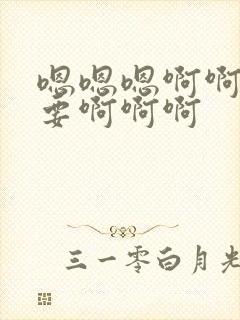 嗯嗯嗯啊啊
要啊啊啊
三一零白月光